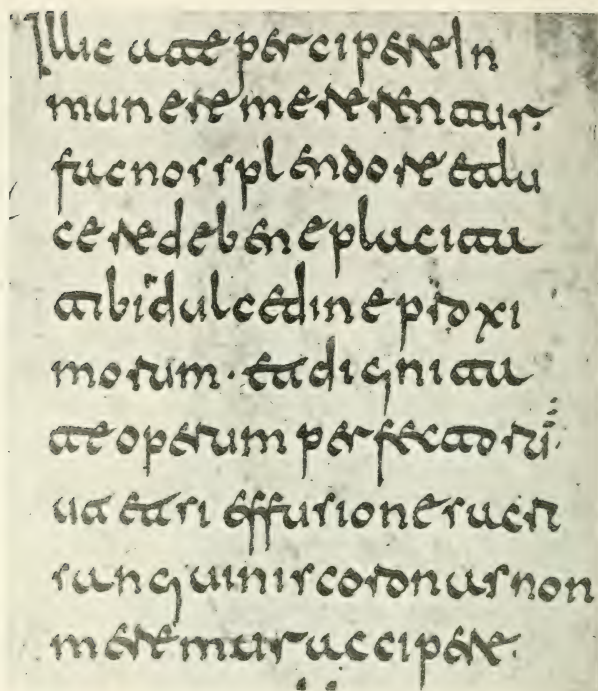 Illic a te percipere In
munere mererentur·
fac nos splendore et lu
cere de beneplacita
tibi dulcedine proxi
morum· et dignita
te operum perfectorū·
ut etsi effusione sacri
sanguinis coronas non
meremur accipere·